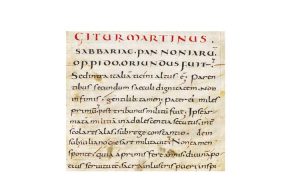 GITUR MARTINUS
SABBARIAE PANNONIARŪ
OPPIDO ORIUNDUS FUIT
Sed intra italiā ticini altus ē paren
tibus secundum saeculi dignitatem non
infimis gentilib. tamen pater ei miles
primū post tribunus militū fuit Ipse ar
matā militiā in adolescentia secutus int
scolares alas sub rege constantio dein
sub iuliano caesare militauit Non tamen
sponte quia a primis fere annis diuinā po
tius seruitutē sacra inlustris pueri spirauit